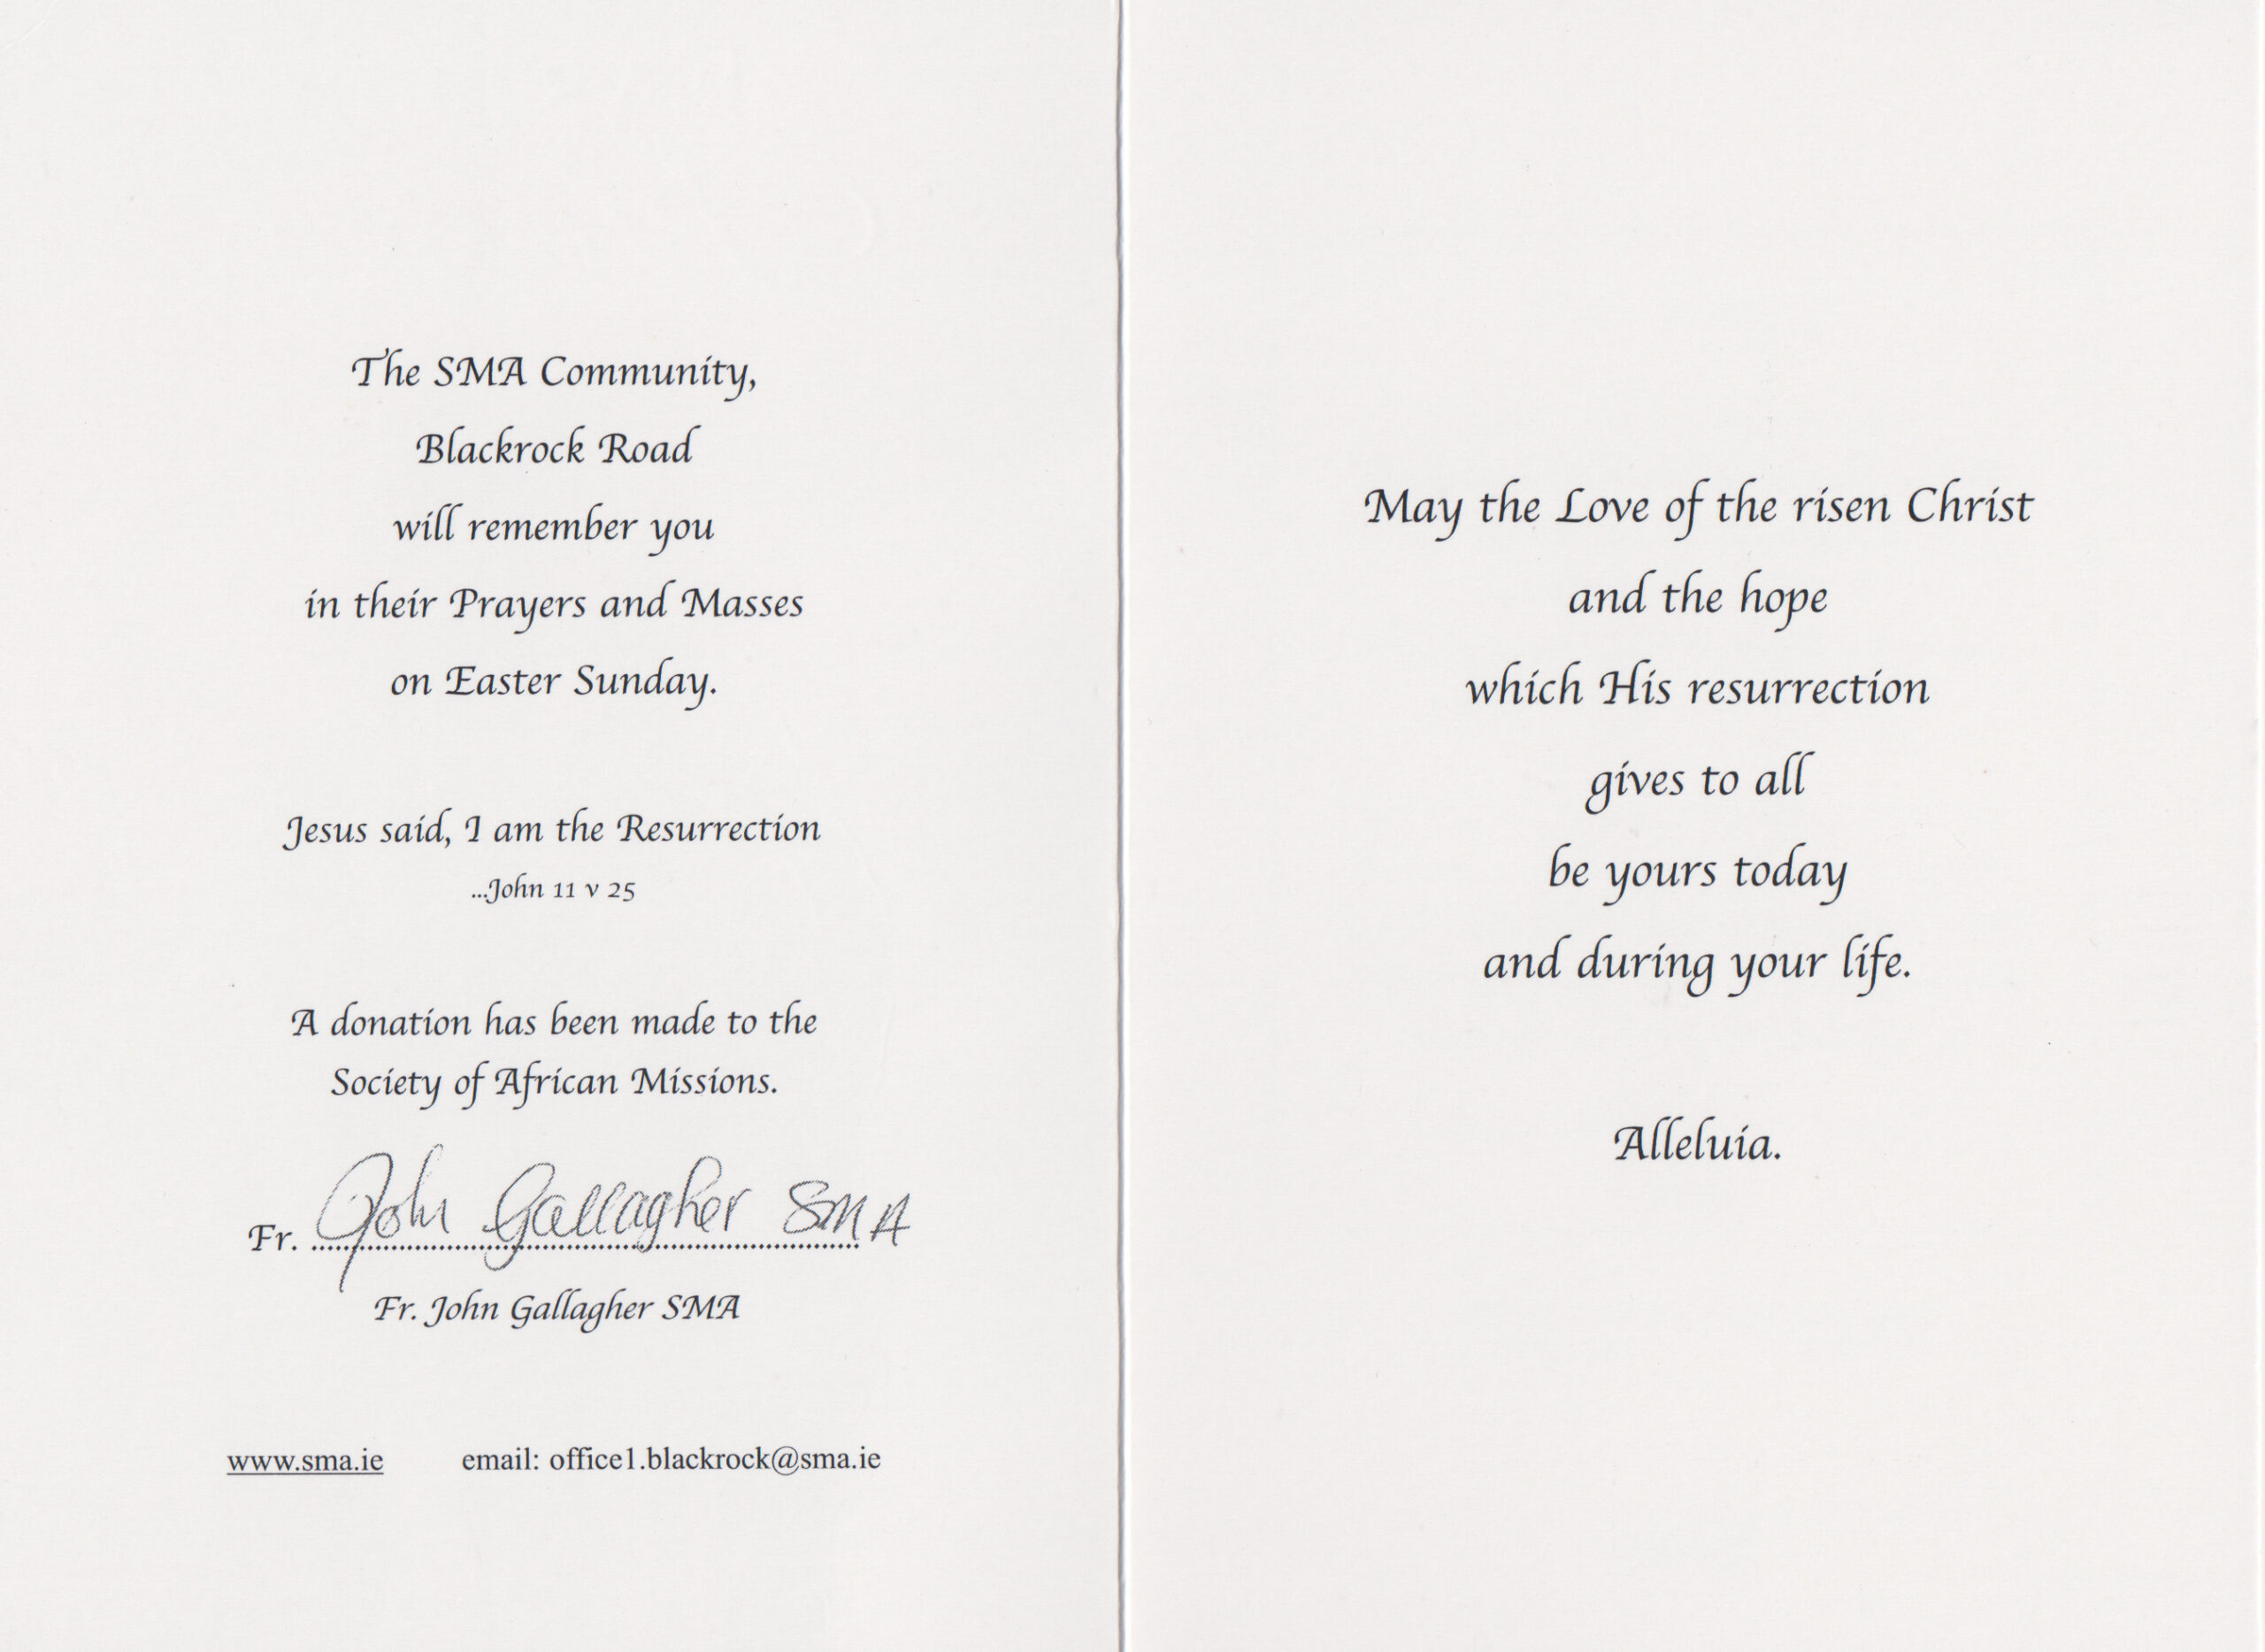 The SMA Community,
Blackrock Road
will remember you
in their Prayers and Masses
on Easter Sunday.
Jesus said, I am the Resurrection
...John 11 v 25
A donation has been made to the
Society of African Missions.
Fr. John Gallagher SMA
Fr. John Gallagher SMA
www.sma.ie email: office1.blackrock@sma.ie
May the Love of the risen Christ
and the hope
which His resurrection
gives to all
be yours today
and during your life.
Alleluia.